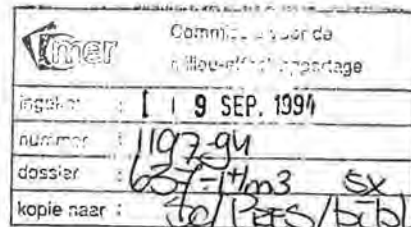 mer Commissie voor de
milieu-effectrapportage
ingekomen : 19 SEP. 1994
nummer : 1197-94
dossier : 637-14/m3 SX
kopie naar : Sc/ /bibl